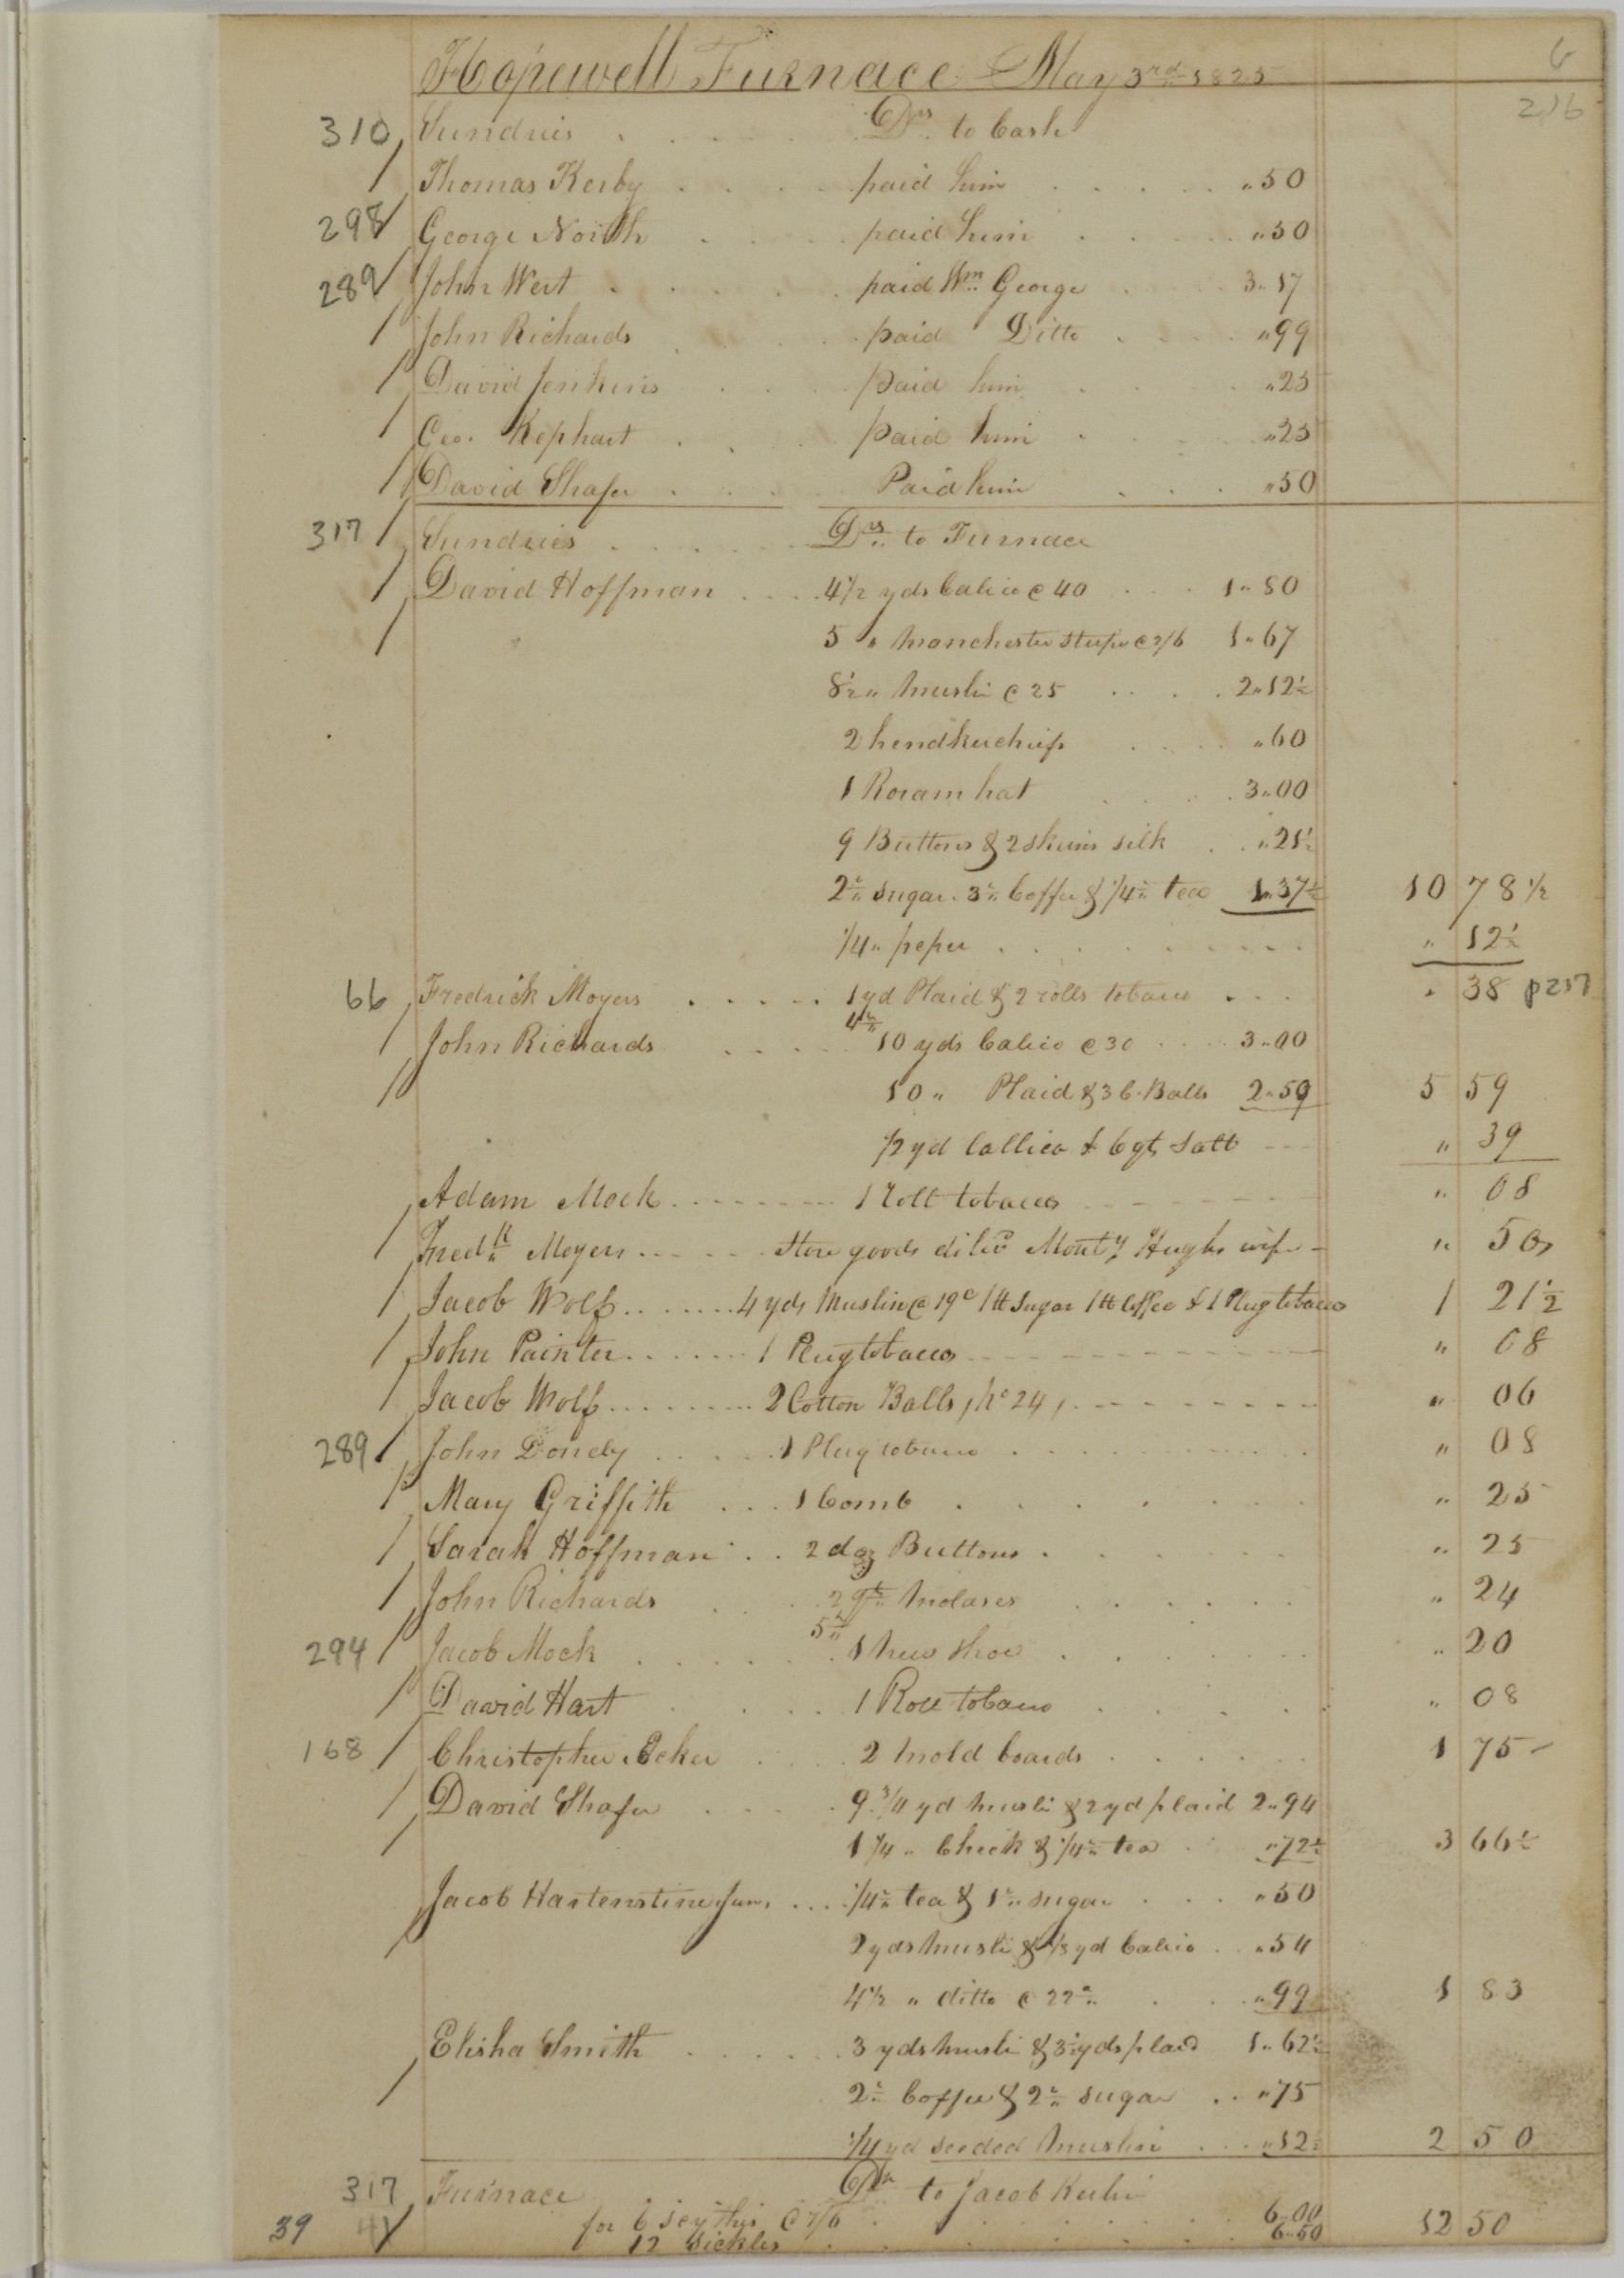 Hopewell Furnace May 3rd 1825 6
216
310 Sundries . . . . Drs to Cash
Thomas Kerby . . . . paid him . . . . " 50
298 George North . . . paid him . . . . " 50
289 John West . . . . . paid Wm George . . . 3 " 17
John Richards . . . . paid Ditto . . . . " 99
David Jenkins . . . paid him . . . " 25
Geo. Kephart . . . paid him . . . " 25
David Shafer . . . Paid him . . . " 50
317 Sundries . . . . . . Drs to Furnace
David Hoffman . . . . 4 1/2 yds Calico @ 40 . . . 1 " 80
5 " Manchester stripe @ 2/6 1 " 67
8 1/2 " muslin @ 25 . . . . 2 " 12 1/2
2 hendkerchifs . . . . " 60
1 Roram hat . . . . 3 " 00
9 Buttons & 2 skeins silk . . " 21 1/2
2 " sugar. 3 " Coffee & 1/4 " tea 1 " 37 1/2 10 78 1/2
1/4 " peper . . . . . . . . . " 12 1/2
66 Fredrick Moyers . . . . . 1 yd Plaid & 2 rolls tobacco . . . " 38 p 217
John Richards . . . . 4th 10 yds Calico @ 30 . . . 3 " 00
10 " Plaid & 3 C. Balls 2 " 59 5 59
1/2 yd Callico & 6 qts Salt - - " 39
Adam Mock . . . . . . . . 1 Roll tobacco - - - - - " 08
Fredk Meyers . . . . . Store goods delivd Monty Hughs wife - " 50
Jacob Wolf . . . . . . . 4 yds Muslin @ 19c 1 tt Sugar 1 tt Coffee & 1 Plug tobacco 1 21 1/2
John Painter . . . . . . . 1 Plug tobacco - - - - - - - " 08
Jacob Wolf . . . . . . . . 2 Cotton Balls, No 24, - - - - - - - " 06
289 John Dondy . . . . . 1 Plug tobacco . . . . . . . " 08
Mary Griffith . . . 1 Comb . . . . . . . " 25
Sarah Hoffman . . 2 doz Buttons . . . . . . " 25
John Richards . . . . 2 qts Molases . . . . . . " 24
294 Jacob Mock . . . . . 5th 1 new shoe . . . . . . " 20
David Hart . . . . 1 Roll tobacco . . . . . " 08
168 Christopher Acker . . . 2 Mold boards . . . . . . 1 75
David Shafer . . . . . 9 3/4 yd muslin & 2 yd plaid 2 " 94
1 1/4 " Check & 1/4 " tea . " 72 1/2 3 66 1/2
Jacob Hartenstine Jun. . . . 1/4 " tea & 1 " sugar . . . " 50
2 yds muslin & 1/3 yd Calico . . " 54
4 1/2 " ditto @ 22 " . . . " 99 1 83
Elisha Smith . . . . . . 3 yds muslin & 3 1/2 yds plaid 1 " 62 1/2
2 " Coffee & 2 " sugar . . " 75
1/4 yd seeded muslin . . . " 12 1/2 2 50
317 Furnace . Dr to Jacob
for 6 scythes @ 7/6 . . . . . . . 6 " 00
39 41 12 Sickles . . . . . . . 6 " 50 12 50